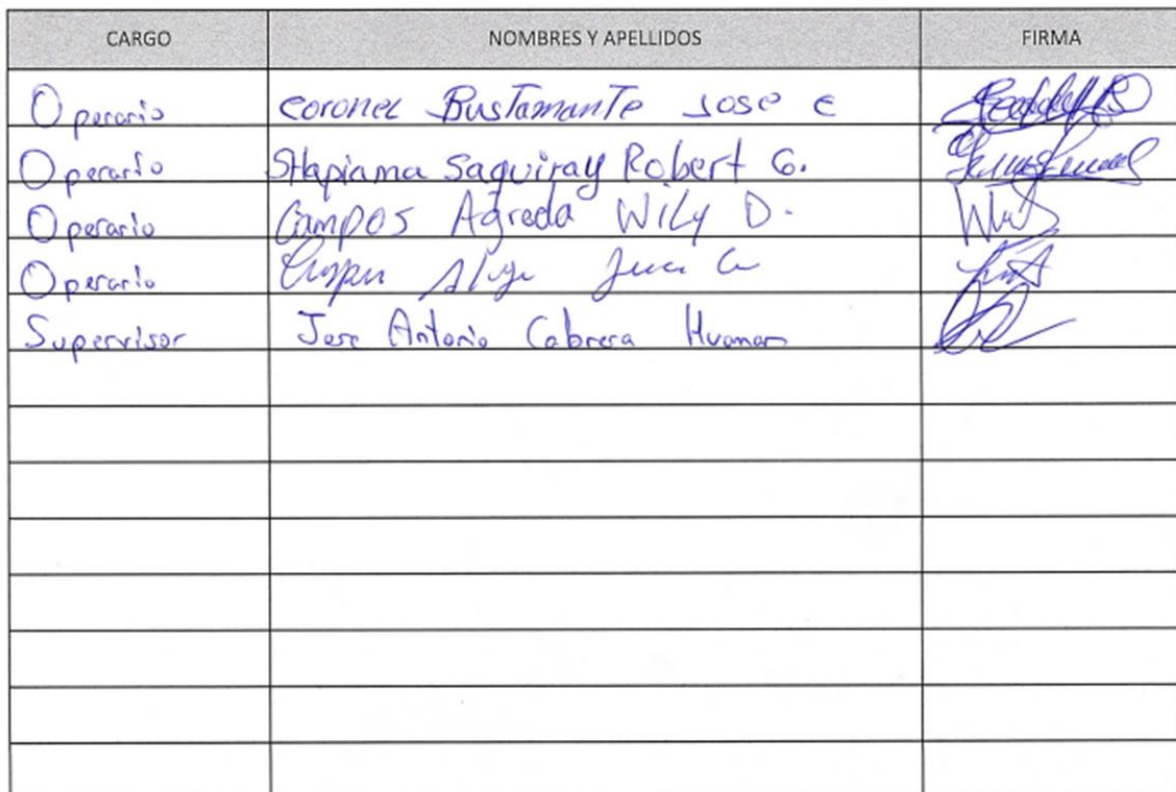 CARGO NOMBRES Y APELLIDOS FIRMA
Operario Coronel Bustamante Jose E
Operario Shapiama Saquiray Robert G.
Operario Campos Agreda Wily D.
Operario
Supervisor Jose Antonio Cabrera Huaman